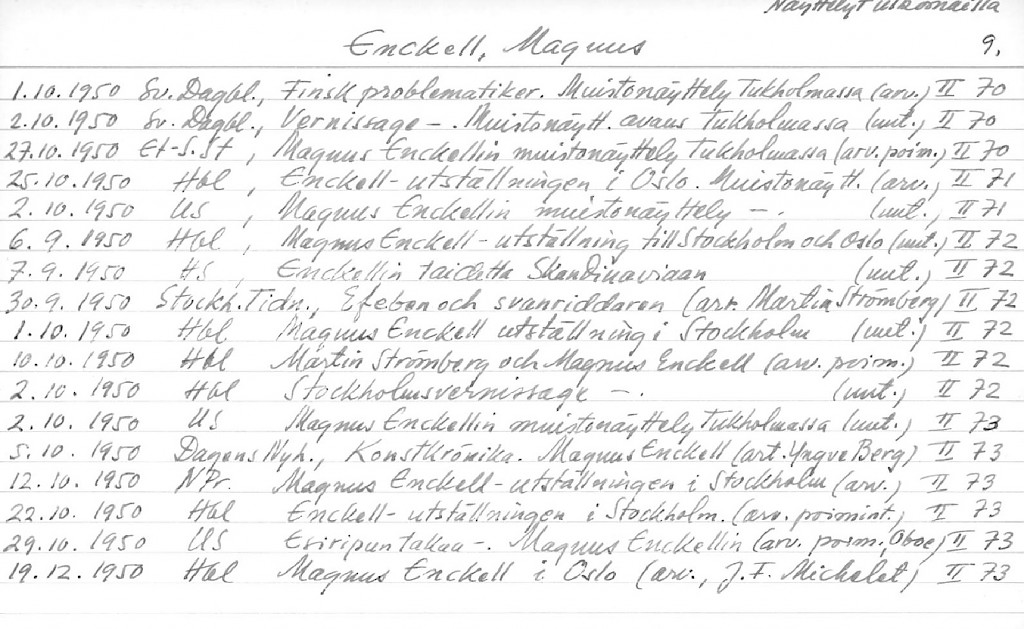 Näyttelyt ulkomailla
Enckell, Magnus 9.
1.10.1950 Sv. Dagbl., Finsk problematiker. Muistonäyttely Tukholmassa (arv.) II 70
2.10.1950 Sv. Dagbl., Vernissage -. Muistonäytt. avaus Tukholmassa (uut.) II 70
27.10.1950 Et-S. St, Magnus Enckellin muistonäyttely Tukholmassa (arv. poim.) II 70
25.10.1950 Hbl, Enckell-utställningen i Oslo. Muistonäytt. (arv.) II 71
2.10.1950 US, Magnus Enckellin muistonäyttely -. (uut.) II 71
6.9.1950 Hbl, Magnus Enckell-utställning till Stockholm och Oslo (uut.) II 72
7.9.1950 HS, Enckellin taidetta Skandinaviaan (uut.) II 72
30.9.1950 Stockh. Tidn., Efeben och svanriddaren (arv. Martin Strömberg) II 72
1.10.1950 Hbl Magnus Enckell utställning i Stockholm (uut.) II 72
10.10.1950 Hbl Martin Strömberg och Magnus Enckell (arv. poim.) II 72
2.10.1950 Hbl Stockholmsvernissage -. (uut.) II 72
2.10.1950 US Magnus Enckellin muistonäyttely Tukholmassa (uut.) II 73
5.10.1950 Dagens Nyh., Konstkrönika. Magnus Enckell (art. Yngve Berg) II 73
12.10.1950 NPr. Magnus Enckell-utställningen i Stockholm (arv.) II 73
22.10.1950 Hbl Enckell-utställningen i Stockholm. (arv. poimint.) II 73
29.10.1950 US Esiripun takaa -. Magnus Enckellin (arv. poim., Oboe) II 73
19.12.1950 Hbl Magnus Enckell i Oslo (arv., J.F. Michelet) II 73